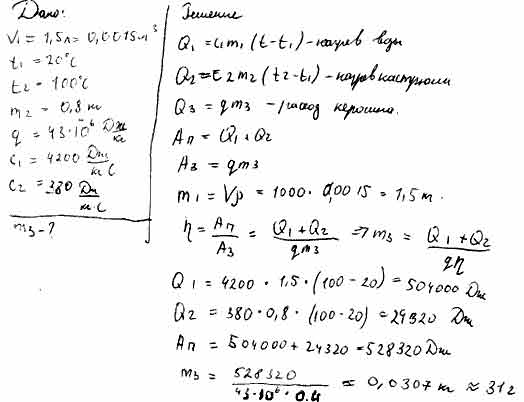 Дано:
V₁ = 1,5л = 0,0015 м³
t₁ = 20°C
t₂ = 100°C
m₂ = 0,8 кг
q = 43·10⁶ Дж/кг
c₁ = 4200 Дж/кг·C
c₂ = 380 Дж/кг·C
m₃ - ?
Решение
Q₁ = c₁m₁(t-t₁) - нагрев воды
Q₂ = c₂m₂(t₂-t₁) - нагрев кастрюли
Q₃ = qm₃ - расход керосина.
Aп = Q₁ + Q₂
Aз = qm₃
m₁ = Vρ = 1000 · 0,0015 = 1,5 кг.
η = Aп/Aз = (Q₁+Q₂)/qm₃ ⇒ m₃ = (Q₁+Q₂)/qη
Q₁ = 4200 · 1,5 · (100-20) = 504000 Дж
Q₂ = 380 · 0,8 · (100-20) = 24320 Дж
Aп = 504000 + 24320 = 528320 Дж
m₃ = 528320/43·10⁶·0,4 = 0,0307 кг ≈ 31г